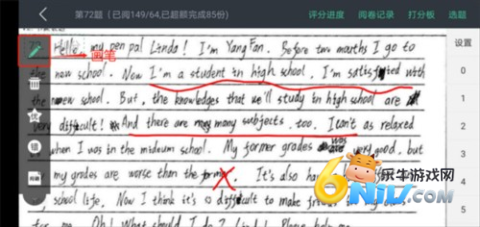 第72题 (已阅149/64,已超额完成85份)
评分进度 阅卷记录 打分板 选题
画笔
设置
Hello, my pen pal Linda! I'm Yang Fan. Before two months I go to
the new school. Now I'm a student in high school. I'm satisfied with
the new school. But, the knowledges that we'll study in high school are
very difficult! And there are many subjects, too. I can't as relaxed
when I was in the mideum school. My former grades was very good, but
my grades are worse than the It's also
school life. Now I think it's difficult to make
for me. Oh! What should I do?
0
1
2
3
4
5
6niu.com
乐牛游戏网